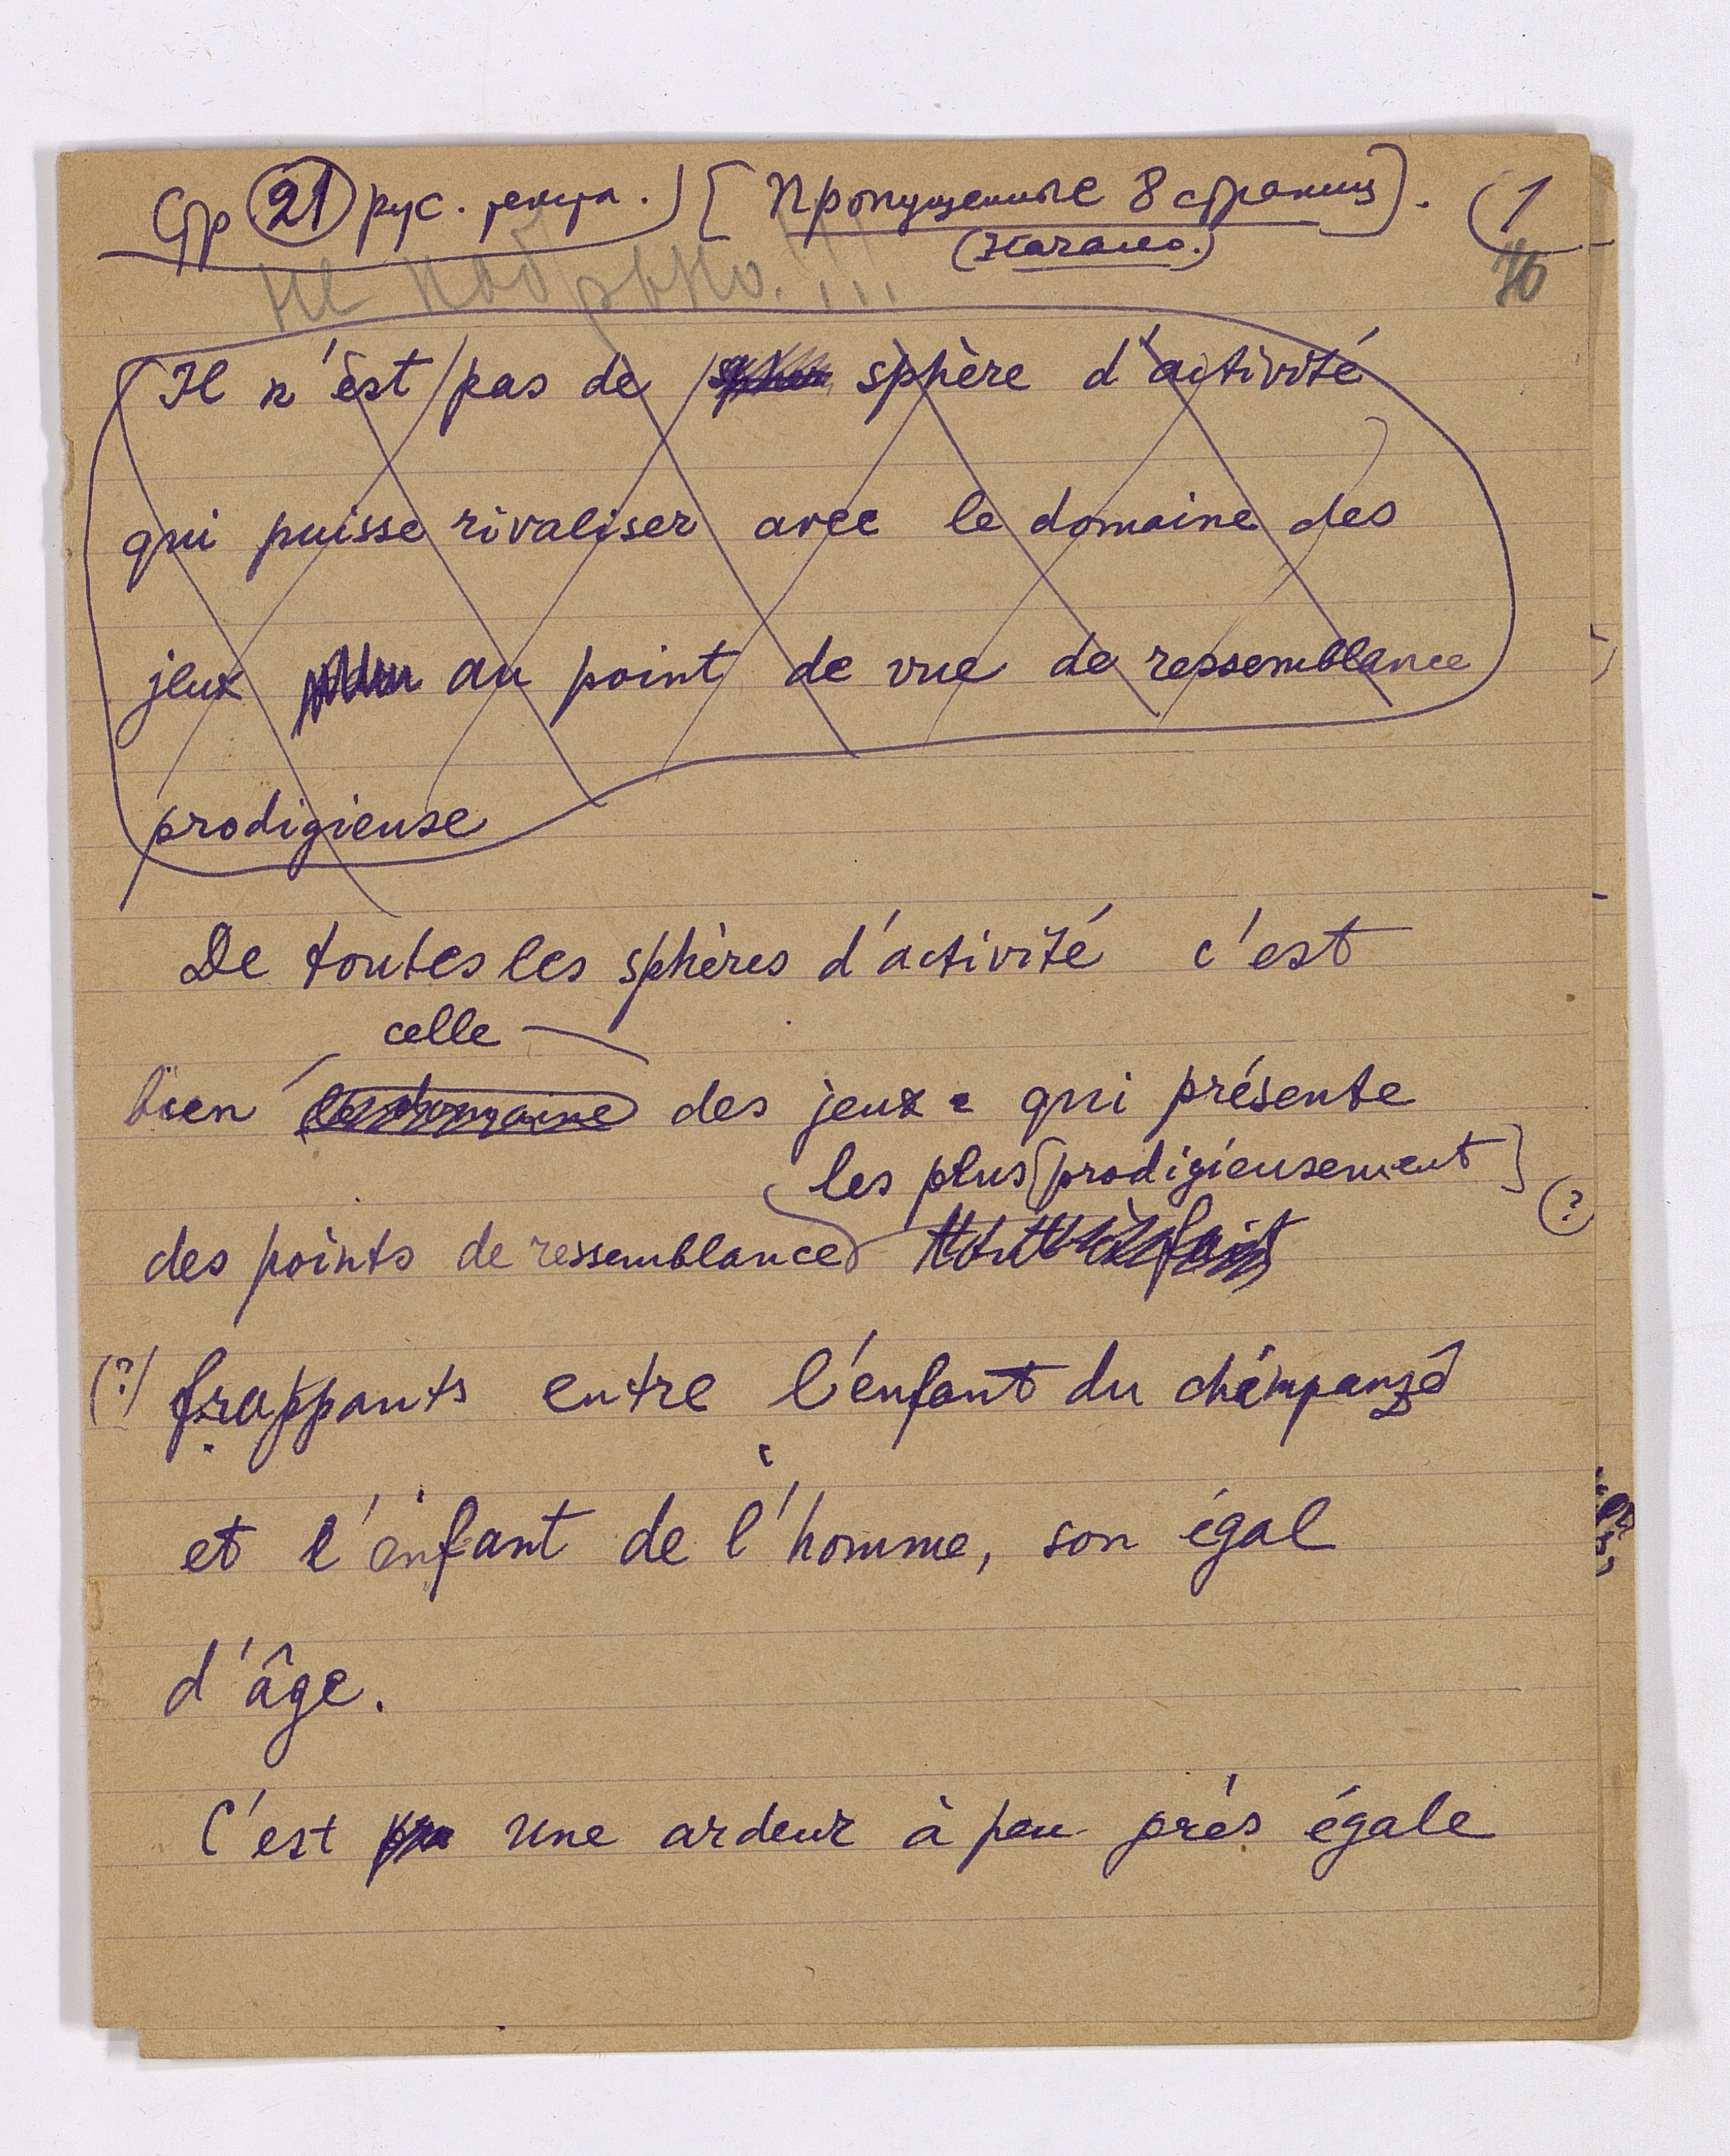 Стр 21 рус. текста.) [Пропущенные 8 страниц]. (1
(Начало.)
70
не
Il n'est pas de sphère d'activité
qui puisse rivaliser avec le domaine des
jeux au point de vue de ressemblance
prodigieuse
De toutes les sphères d'activité c'est
celle
bien le domaine des jeux qui présente
les plus [prodigieusement]
(?)
des points de ressemblance tout à fait
(?) frappants entre l'enfant du chimpanzé
et l'enfant de l'homme, son égal
d'âge.
C'est une ardeur à peu près égale